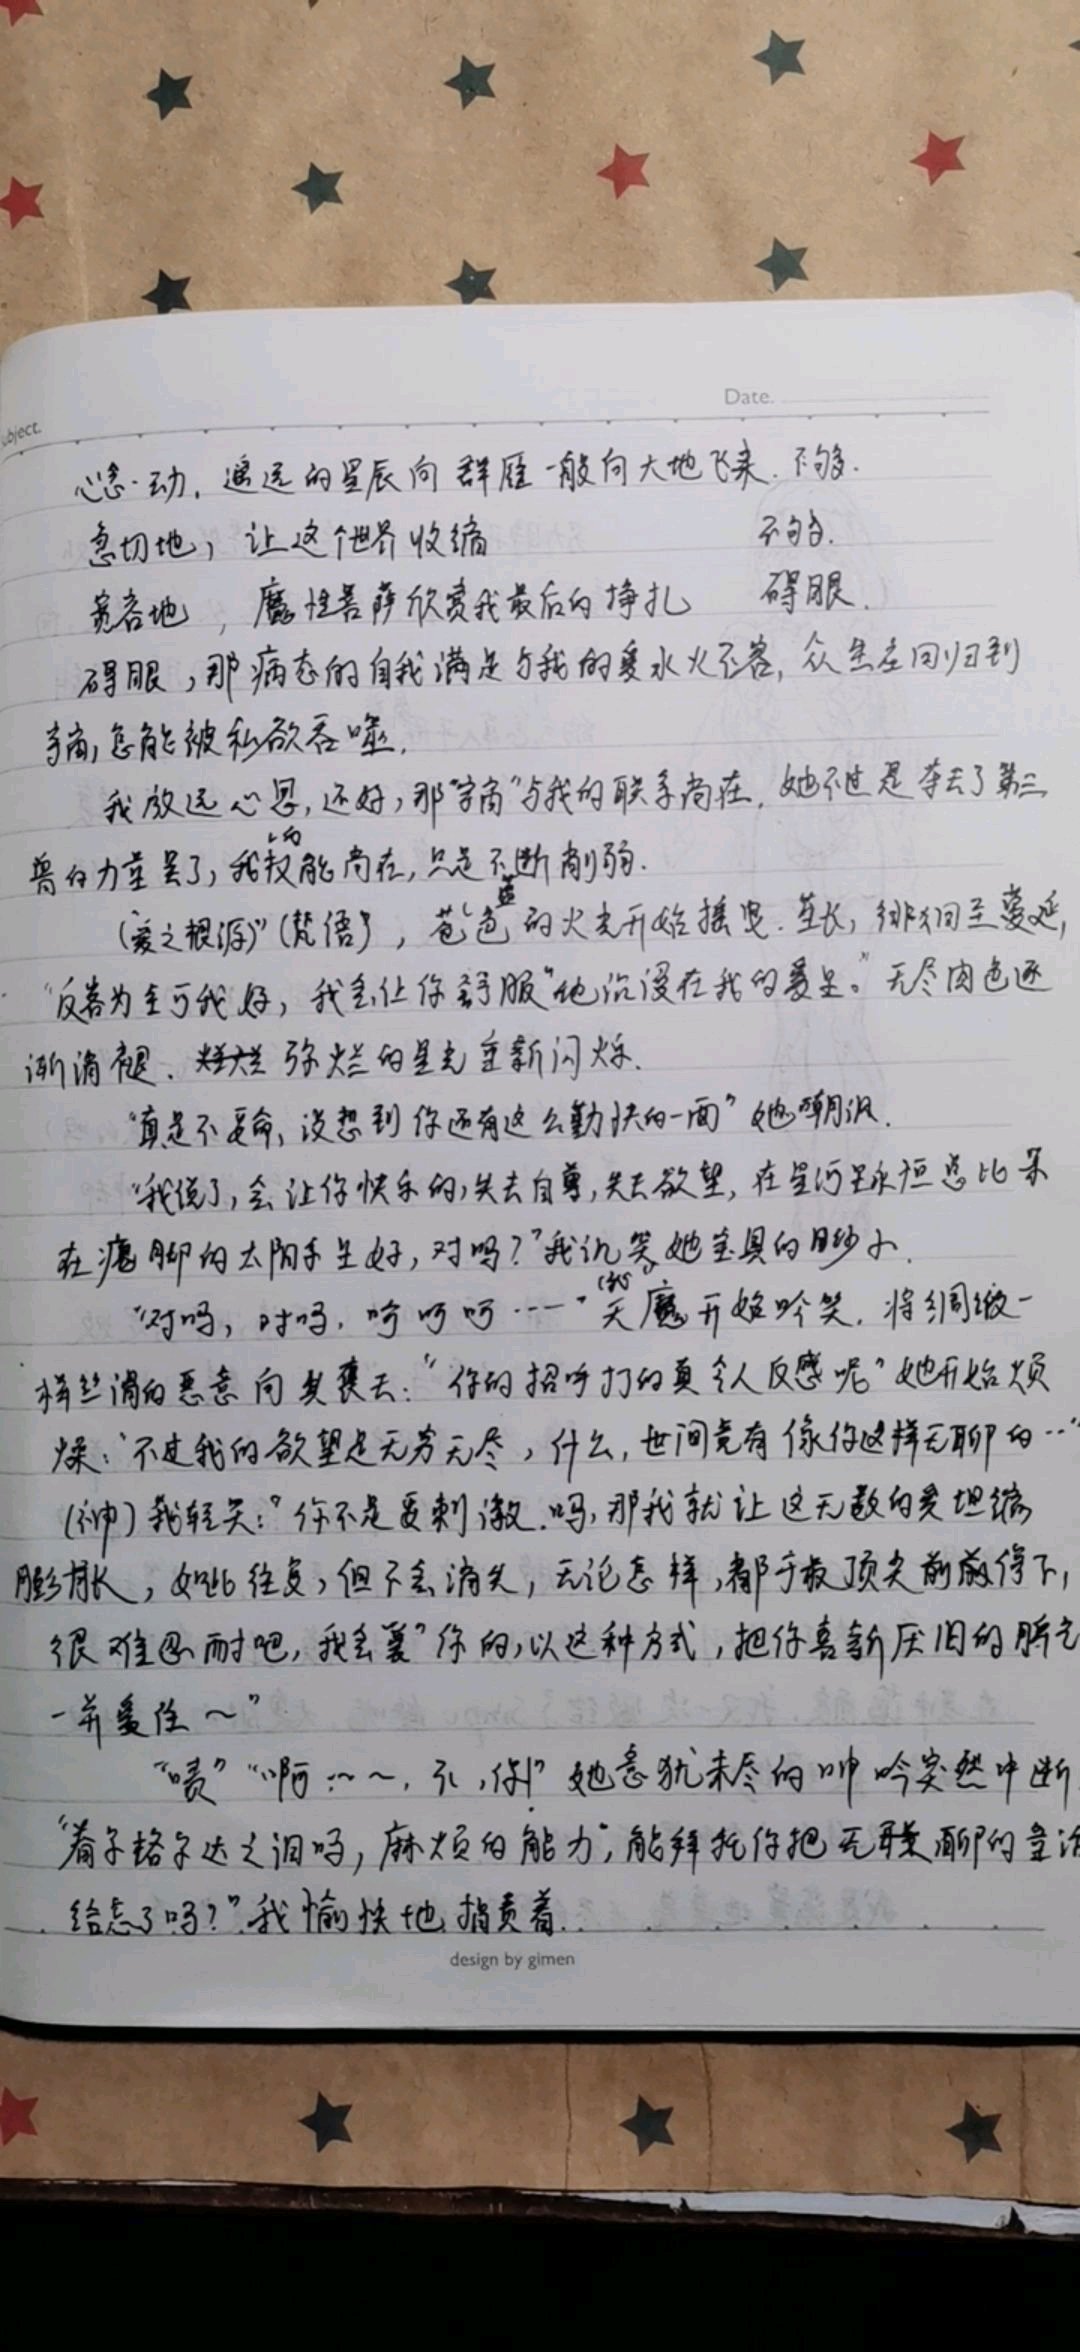 Subject.
Date.
心念一动，遥远的星辰向群雁一般向大地飞来．不够．
急切地，让这个世界收缩 不够．
宽容地，魔性菩萨欣赏我最后的挣扎 碍眼．
碍眼，那病态的自我满足与我的爱水火不容，众生应回归到
怎能被私欲吞噬．
我放远心思，还好，那"宇宙"与我的联系尚在，她不过是夺去了第三
兽的力量罢了，我的权能尚在，只是不断削弱．
(爱之根源)"(梵语)，苍蓝色的火光开始摇曳．生长，徘徊至蔓延，
"反客为主可我好，我会让你舒服"他沉浸在我的爱里。"无尽肉色逐
渐消褪．弥烂的星光重新闪烁．
"真是不要命，没想到你还有这么勤快的一面"她嘲讽．
"我说了，会让你快乐的，失去自尊，失去欲望，在星河里永恒总比呆
在瘪脚的太阳系里好，对吗？"我讥笑她宝具的渺小．
"对吗，对吗，呵呵呵……"天魔开始吟笑．将绸缎一
样丝滑的恶意向袭去："你的招呼打的真令人反感呢"她开始烦
燥："不过我的欲望是无穷无尽，什么，世间竟有像你这样无聊的…"
(神)我轻笑："你不是要刺激．吗，那我就让这无数的爱坦缩
膨胀，如此往复，但不会消失，无论怎样，都于最顶尖前停下，
很难忍耐吧，我会爱"你的，以这种方式，把你喜新厌旧的脾气
一并爱住～"
"啧""啊…～～，不，你！"她意犹未尽的呻吟突然中断
"格尔达之泪吗，麻烦的能力"，能拜托你把无聊的生活
给忘了吗？"我愉快地指责着．
design by gimen